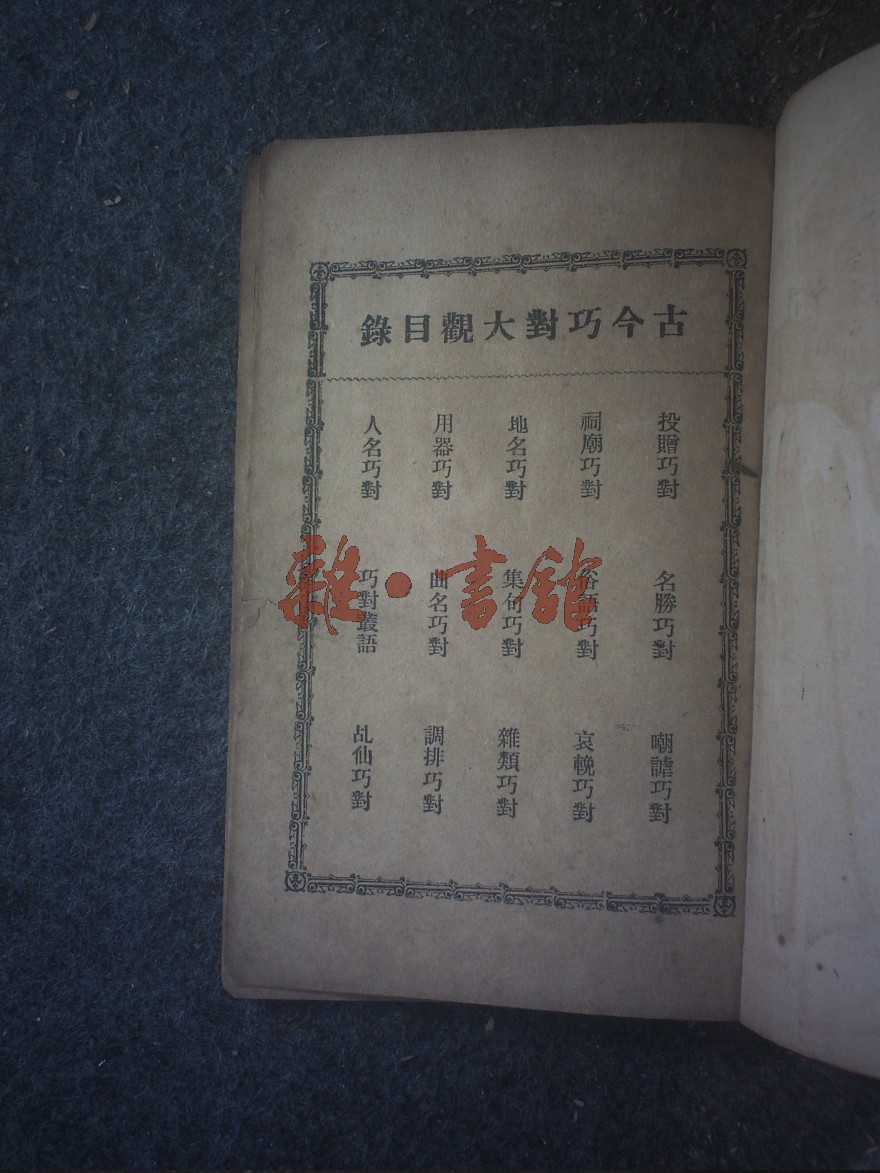 古今巧對大觀目錄
投贈巧對
名勝巧對
嘲謔巧對
祠廟巧對
俗語巧對
哀輓巧對
地名巧對
集句巧對
雜類巧對
用器巧對
曲名巧對
調排巧對
人名巧對
巧對叢語
乩仙巧對
雜·書館